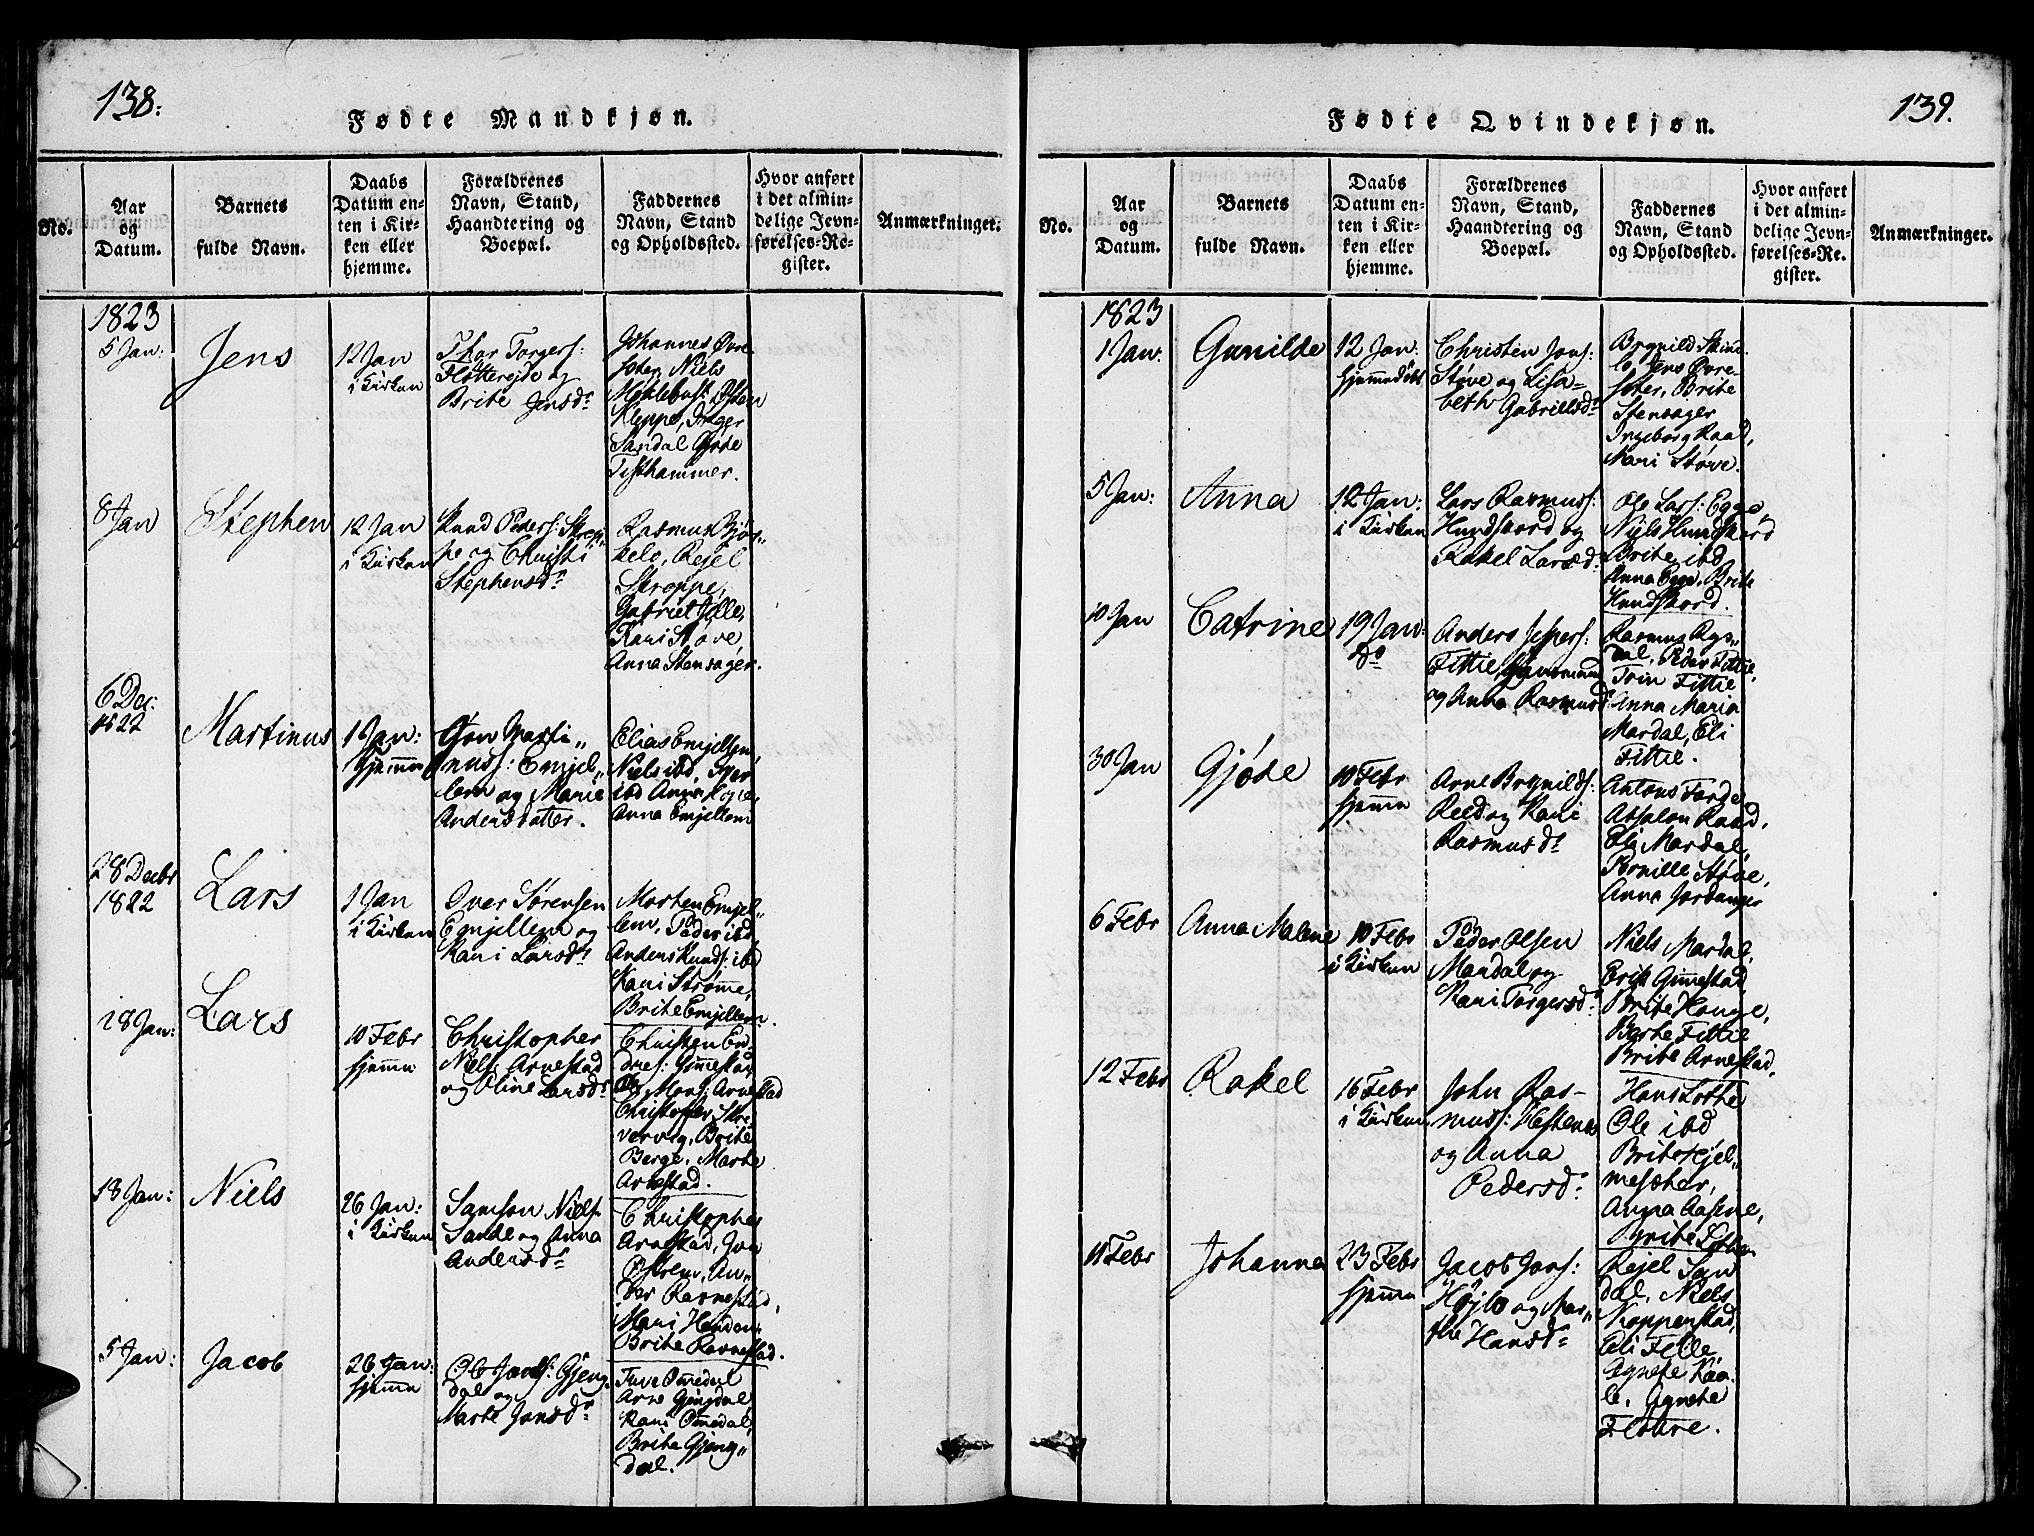 138.
Fødte Mandkjøn.
No.
Aar
og
Datum.
Barnets
fulde Navn.
Daabs
Datum en-
ten i Kir-
ken eller
hjemme.
Forældrenes
Navn, Stand,
Haandtering og
Boepæl.
Faddernes
Navn, Stand
og Opholdssted.
Hvor anført
i det almin-
delige Jevn-
førelses-Re-
gister.
Anmærkninger.
1823
5 Jan:
Jens
12 Jan
i Kirken
Thor Torgers:
Flotterejde og
Brite Jensdr
Johannes Øvre-
sæter, Niels
Myklebust, Østen
Kleppe, Inger
Sandal
Tisthammer.
8 Jan
Stephen
12 Jan
i Kirken
Knud Peders: Skrep-
pe og Christi
Stephensdr
Rasmus Bjør-
kelo, Rejel
Skreppe,
Gabriel Gylle,
Kari Støve,
Anna Stensager.
6 Dec:
1822
Martinus
1 Jan:
hjemme
Gjøn Marti-
nuss: Emjel-
lem og Marie
Andersdatter.
Elias Emjellem,
Niels ibd, Iver
ibd Anna Hope,
Anna Emjellem
28 Decbr
1822
Lars
1 Jan
i Kirken
Iver Sørensen
Emjellem og
Kari Larsdr
Morten Emjel-
lem, Peder ibd
Anders Knuds: ibd
Kari Strømme,
Brite Emjellem.
28 Jan:
Lars
10 Febr
hjemme
Christopher
Niels: Arnestad
og Oline Larsdr
Christen En-
dres: Gimmestad,
Ole Mons: Arnestad
Christopher Skre-
vervig, Brite
Berge, Marte
Arnestad.
18 Jan:
Niels
26 Jan:
i Kirken
Samson Niels:
Sande og Anna
Andersdr
Christopher
Arnestad, Jon
Østrem, An-
ders Ravnestad,
Mari Henden,
Brite Ravnestad.
5 Jan:
Jacob
26 Jan:
hjemme
Ole Jacobs: Gjeng-
dal og
Marte Jonsdr
Tuve Ommedal
Arne Gjengdal,
Kari Ommedal,
Brite Gjeng-
dal.
139.
Fødte Qvindekjøn.
No.
Aar
og
Datum.
Barnets
fulde Navn.
Daabs
Datum en-
ten i Kir-
ken eller
hjemme.
Forældrenes
Navn, Stand,
Haandtering og
Boepæl.
Faddernes
Navn, Stand
og Opholdssted.
Hvor anført
i det almin-
delige Jevn-
førelses-Re-
gister.
Anmærkninger.
1823
1 Jan:
Gunilde
12 Jan:
hjemmedøbt
Christen Jons:
Støve og Lisa-
beth Gabrielsdr
Brynild Skind-
lo, Jens Øvre-
sæter, Brite
Stensager
Ingeborg Raad,
Mari Støve.
5 Jan:
Anna
12 Jan:
i Kirken
Lars Rasmuss:
Hundskord og
Rakel Larsdr
Ole Lars: Egge,
Niels Hundskord
Brite ibd
Anna Egge, Brite
Hundskord.
10 Jan
Catrine
19 Jan:
do
Anders Jespers:
Fittie,
og Anna Rasmusdr
Rasmus Ryg-
dal, Peder Fittie,
Trin Fittie
Anna Maria
Mardal, Eli
Fittie.
30 Jan
Gjøde
10 Febr
hjemme
Arne Brynilds:
Reed og Kari
Rasmusdr
Antons Førde,
Absalon Raad,
Eli Mardal,
Pernille Støve,
Anna Jordanger
6 Febr
Anna Malene
10 Febr
i Kirken
Peder Olsen
Mardal og
Kari Torgersdr
Niels Mardal,
Erik Gimmestad,
Brite Hauge,
Barte Fittie
Brite Arnestad,
12 Febr
Rakel
16 Febr
i Kirken
John Ras-
muss: Hestenes
og Anna
Pedersdr
Hans Lothe
Ole ibd
Brite Hjel-
mesæter,
Anna Aasene,
Brite Lothe.
11 Febr
Johanna
23 Febr
hjemme
Jacob Jons:
Højlo og Mar-
the Hansdr
Rejel San-
dal, Niels
Koppenstad,
Eli Felle
Agnete Kaa-
le, Agnete
Flølure.